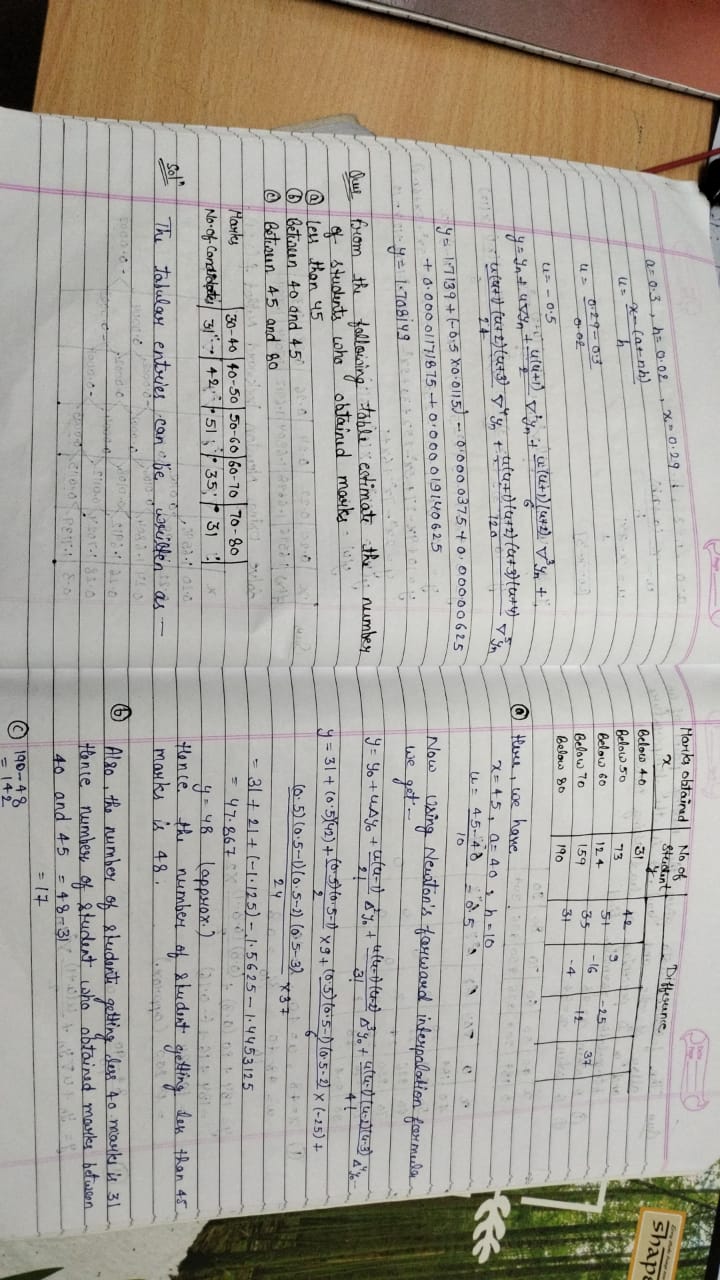 a=0.3 , h=0.02 , x=0.29
u= x-(a+nh) / h
u= 0.29-0.3 / 0.02
u= -0.5
y= yn + u∇yn + u(u+1)/2 ∇²yn + u(u+1)(u+2)/6 ∇³yn +
u(u+1)(u+2)(u+3)/24 ∇⁴yn + u(u+1)(u+2)(u+3)(u+4)/120 ∇⁵yn
y= 1.7139 + (-0.5 x0.0115) - 0.0000375 + 0.00000625
+ 0.00001171875 + 0.0000019140625
y= 1.708149
Que From the following table estimate the number
of students who obtained marks
(a) Less than 45
(b) Between 40 and 45
(c) Between 45 and 80
Marks 30-40 40-50 50-60 60-70 70-80
No. of Candidates 31 42 51 35 31
Solⁿ The tabular entries can be written as —
Date
Page
Marks obtained x No. of Student y Difference
Below 40 31
42
Below 50 73 9
51 -25
Below 60 124 -16 37
35 12
Below 70 159 -4
31
Below 80 190
(a) Here, we have
x=45, a=40, h=10
u= 45-40 / 10 = 0.5
Now Using Newton's forward interpolation formula
we get -
y= y0 + uΔy0 + u(u-1)/2! Δ²y0 + u(u-1)(u-2)/3! Δ³y0 + u(u-1)(u-2)(u-3)/4! Δ⁴y0
y= 31 + (0.5)(42) + (0.5)(0.5-1)/2 x9 + (0.5)(0.5-1)(0.5-2)/6 x (-25) +
(0.5)(0.5-1)(0.5-2)(0.5-3)/24 x37
= 31 + 21 + (-1.125) - 1.5625 - 1.4453125
= 47.867
y= 48 (approx.)
Hence the number of student getting less than 45
marks is 48.
(b) Also, the number of students getting less 40 marks is 31
Hence number of student who obtained marks between
40 and 45 = 48-31
= 17
(c) 190-48
= 142
shape